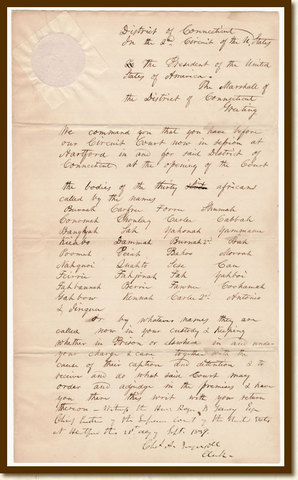 District of Connecticut
In the 2nd Circuit of the U. States
the President of the United
States of America.
The Marshall of
the District of Connecticut
Greeting
We command you that you have before
our Circuit Court now in session at
Hartford in and for said District of
Connecticut at the opening of the Court
the bodies of the thirty africans
called by the names
Carpree Forrie Shuma
Conoma Shonlay Carlee Cabbah
Bangyah Fah Yahonah Yammanee
Kimbo Dammah Burnah 2d Bah
Poomah Peiah Bahoo Morrah
Nahquoi Quahto Sese Con
Ferrie Fahpinah Fah Yahboi
Fahbannah Berrie Fawnee Cochanah
Yahbow Kennah Carlee 2d Antonio
& Jingua
Or by whatever names they are
called now in your custody & keeping
whether in Prison or elsewhere in and under
your charge & care together with the
cause of their caption and detention & to
receive and do what said Court may
order and adjudge in the premises & have
you there this writ with your return
thereon - Witness the Hon. Roger B Taney Esq
Chief Justice of the Supreme Court of the United States
at Hartford the day of Sept. 1839.
Chs. A. Ingersoll
Clerk